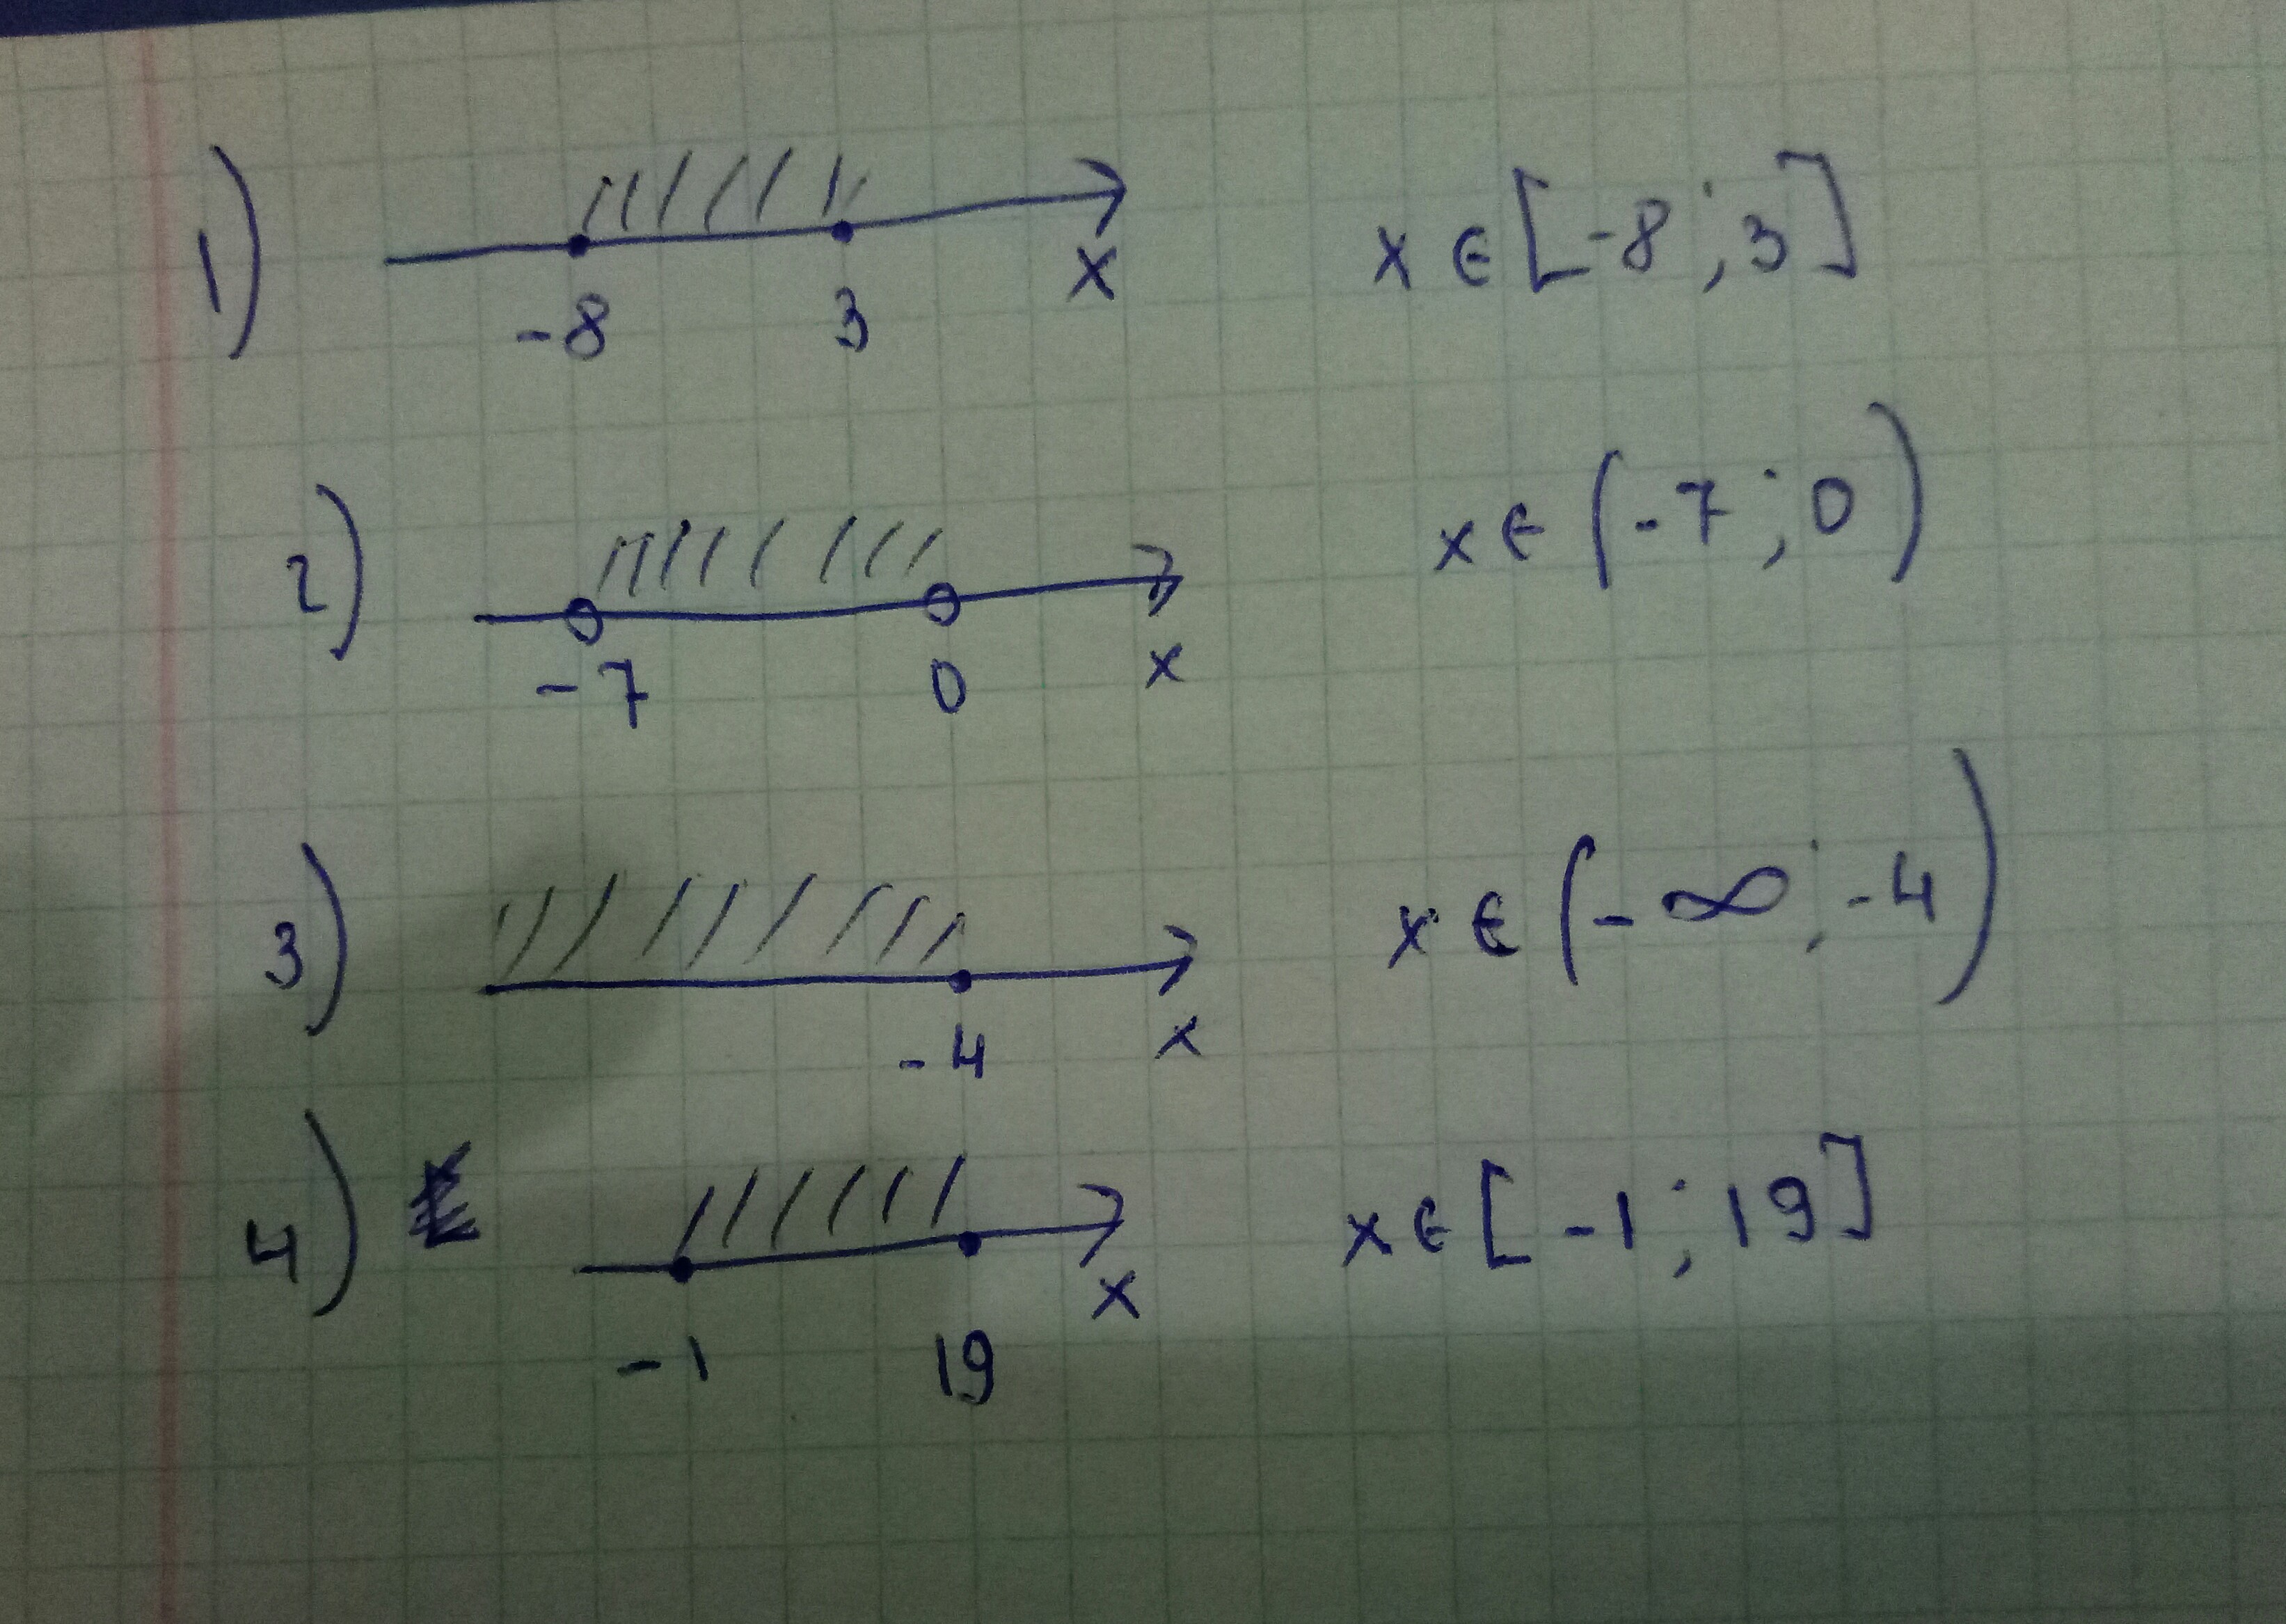 1) -8 3 x x ∈ [-8 ; 3]
2) -7 0 x x ∈ (-7 ; 0)
3) -4 x x ∈ (-∞ ; -4)
4) -1 19 x x ∈ [-1 ; 19]